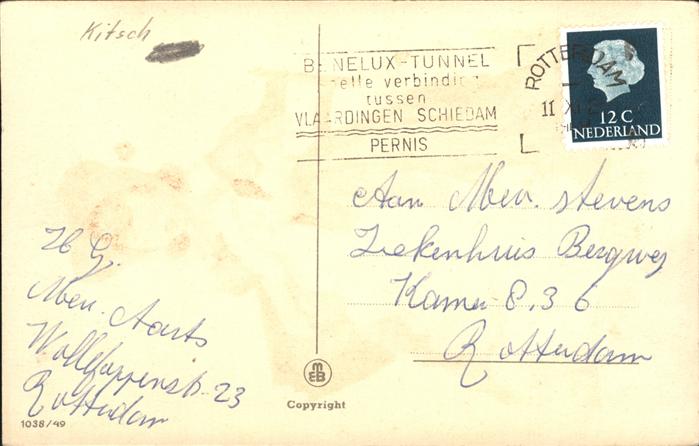 Kitsch
BENELUX-TUNNEL
snelle verbinding
tussen
VLAARDINGEN SCHIEDAM
PERNIS
ROTTERDAM
11 XI
12 C
NEDERLAND
Aan Mev. Stevens
Ziekenhuis Bergweg
Kamer 8.36
Rotterdam
H G.
Mev. Aarts
23
Rotterdam
MEB
Copyright
1038/49